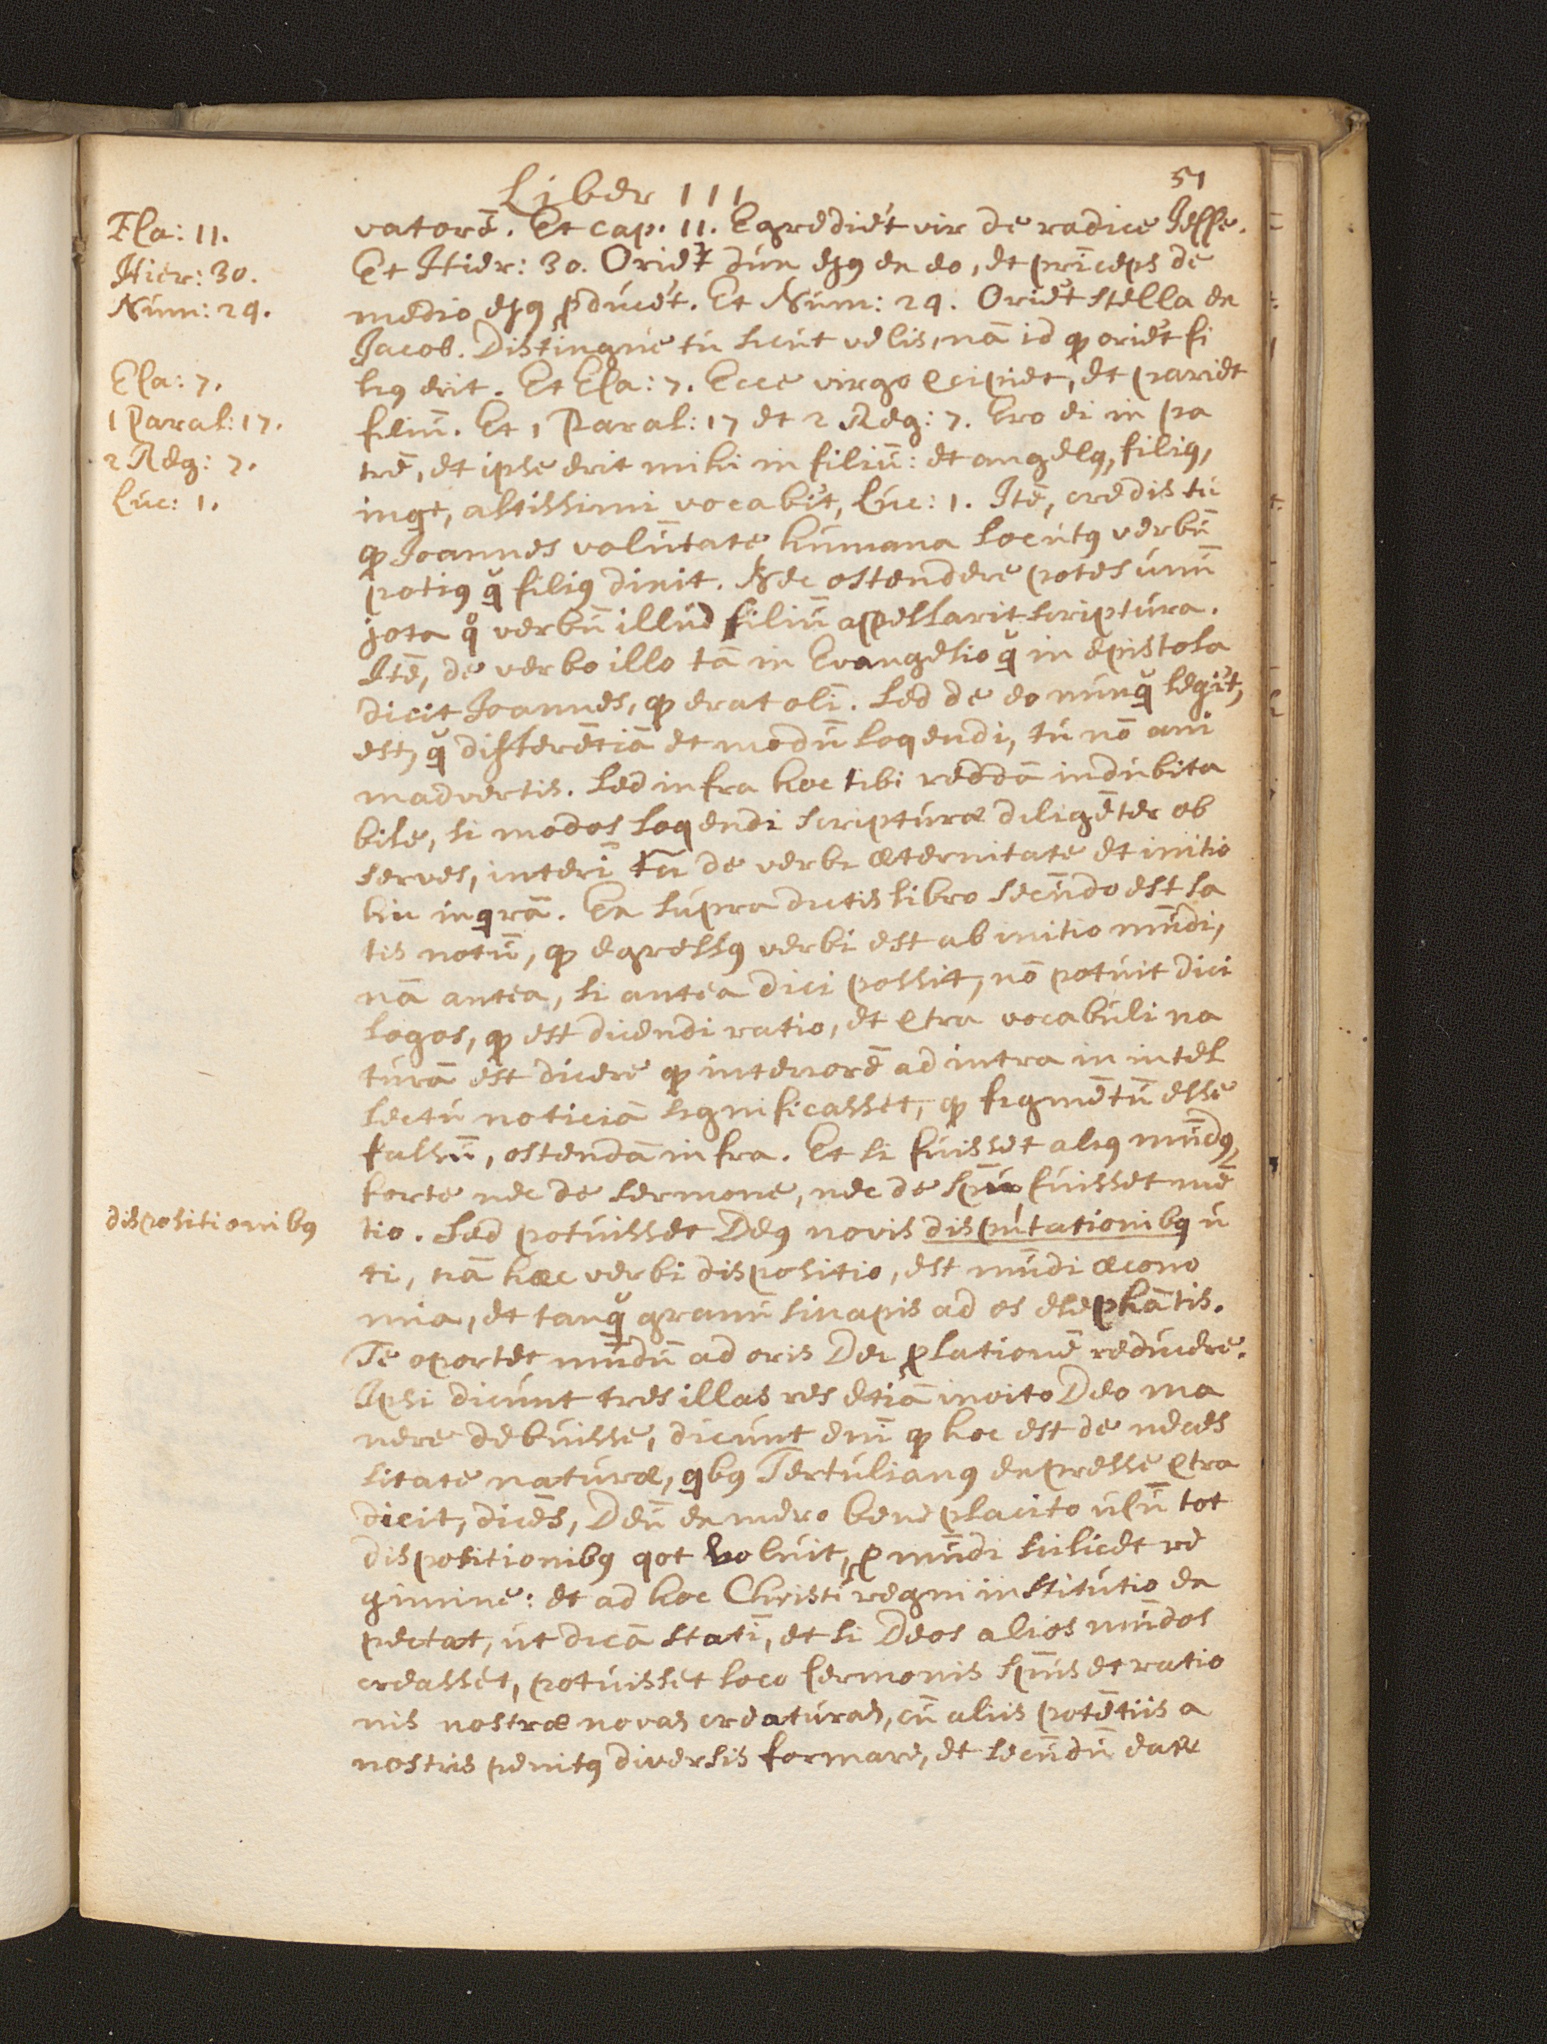 Liber III
51
Esa: 11.
Hier: 30.
Núm: 24.
Esa: 7.
1 Paral: 17.
2 Reg: 7.
Lúc: 1.
dispositionibꝰ
vatorē. Et cap. 11. Egrediet᷑ vir de radice Jesse.
Et Hier: 30. Oriet᷑ dúx ejꝰ ex eo, et prīceps de
medio ejꝰ ꝓdúcet᷑. Et Núm: 24. Oriet᷑ stella ex
Jacob. Distingúe tú sicút velis, nā id ꝙ oriet᷑ fi
liꝰ erit. Et Esa: 7. Ecce virgo ꝯcipiet, et pariet
filiū. Et 1 Paral: 17 et 2 Reg: 7. Ero ei in pa
trē, et ipse erit mihi in filiū: et angelꝰ, filiꝰ,
inqt, altissimi vocabit᷑, Lúc: 1. Itē, credis tú
ꝙ Joannes volūtate húmana locútꝰ verbū
potiꝰ q̃ filiꝰ dixit. Nec ostendere potes únū
jota qͦ verbū illúd filiū appellarit scriptúra.
Itē, de verbo illo tā in Evangelio q̃ in epistola
dicit Joannes, ꝙ erat olī. Sed de eo núnq̃ legit᷑,
est, q̃ differētiā et modū loqendi, tú nō ani
madvertis. Sed infra hoc tibi reddā indúbita
bile, si modos loqendi scriptúræ diligēter ob
serves, interī tn̄ de verbi æternitate et initio
hic inqrā. Ex súpra dictis libro secūdo est sa
tis notū, ꝙ egressꝰ verbi est ab initio mūdi,
nā antea, si antea dici possit, nō potúit dici
logos, ꝙ est dicendi ratio, et ꝯtra vocabúli na
túrā est dicere ꝙ interiorē ad intra in intel
lectú noticiā significasset, ꝙ figmētū esse
falsū, ostendā infra. Et si fúisset aliꝰ mūdꝰ,
forte nec de sermone, nec de spū fúisset mē
tio. Sed potúisset Deꝰ novis dispútationibꝰ ú
ti, nā hæc verbi dispositio, est mūdi œcono
mia, et tanq̃ granū sinapis ad os elephātis.
Te oportet mūdū ad oris Dei ꝓlationē redúcere.
Ipsi dicúnt tres illas res etiā invito Deo ma
nere debúisse, dicúnt enī ꝙ hoc est de neces
sitate natúræ, qbꝰ Tertúlianꝰ expresse ꝯtra
dicit, dicēs, Deū ex mero bene placito úsū tot
dispositionibꝰ qot volúit, ꝓ mūdi scilicet re
gimine: et ad hoc Christi regni institútio ex
pectat, út dicā statī, et si Deos alios mūdos
creasset, potúisset loco sermonis spūs et ratio
nis nostræ novas creatúras, cū aliis potētiis a
nostris penitꝰ diversis formare, et secūdū eas